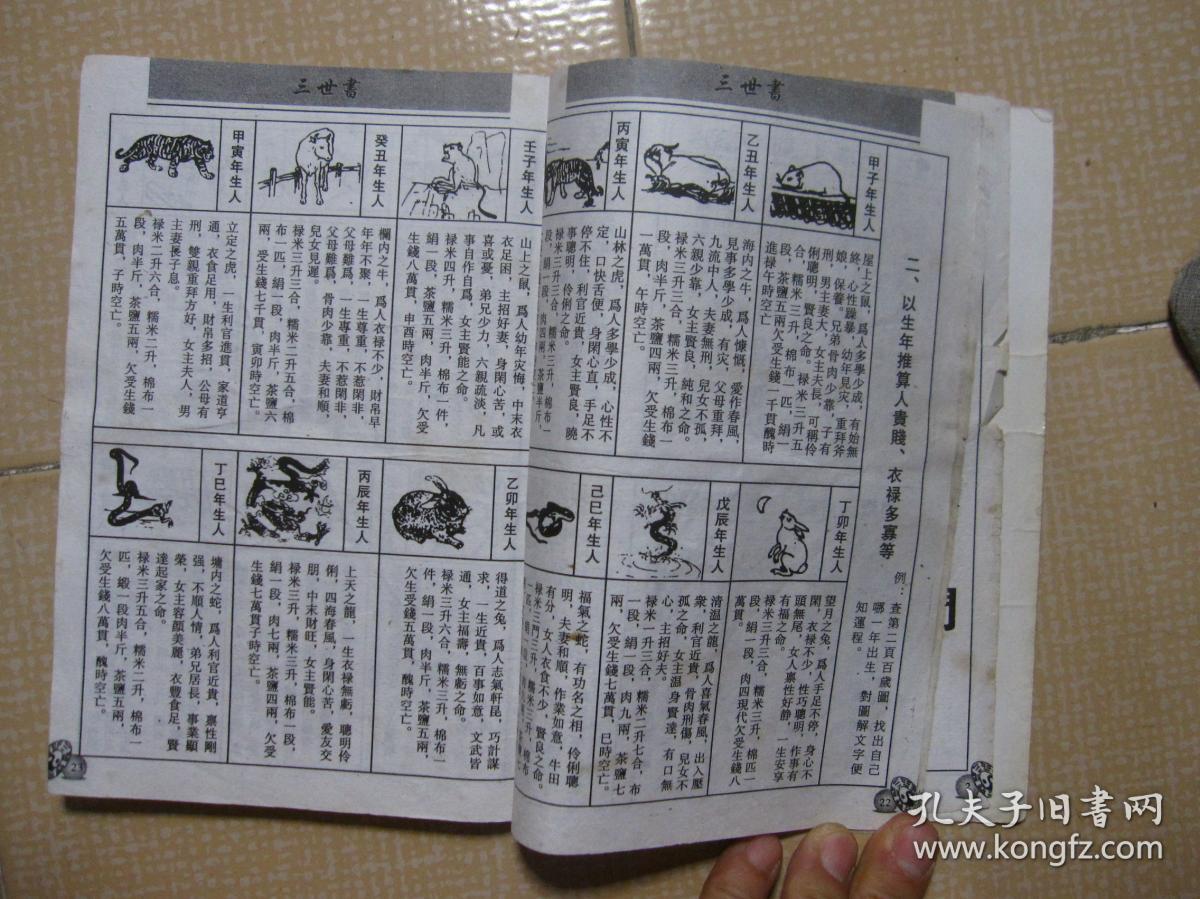 三世書
二、以生年推算人貴賤、衣禄多寡等
例：查第二頁百歲圖，找出自己
哪一年出生，對圖解文字便
知運程。
甲子年生人
屋上之鼠，爲人多學少成，有始無
終，心性躁暴，幼年見灾，重拜斧
娘，保養。兄弟骨肉少靠，子有
刑，男主妻大，女主夫長，可稱伶
俐聰明，賢良之命。禄米三升五
合，糯米三升，棉布一匹，絹一
段，茶鹽五兩欠受生錢一千貫醜時
進禄午時空亡
乙丑年生人
海内之牛，爲人慷慨，愛作春風，
見事多學少成，有灾，父母重拜，
九流中人，夫妻無刑，兒女不孤，
六親少靠，女主賢良，純和之命。
禄米三升三合，糯米三升，棉布一
段，肉半斤，茶鹽四兩，欠受生錢
一萬貫，午時空亡。
丙寅年生人
山林之虎，爲人多學少成，心性不
定，口快舌便，身閑心直，手足不
停不住，利官近貴，女主賢良，曉
事聰明，伶俐之命。
禄米三升三合，糯米三升，棉布一
段，絹一段，肉四兩，茶鹽半斤，
丁卯年生人
望月之兔，爲人手足不停，身心不
閑，衣禄不少，性巧聰明，作事有
頭無尾，女人禀性好静，一生安享
有福之命。
禄米三升三合，糯米三升，棉匹一
段，絹一段，肉四現代欠受生錢八
萬貫。
戊辰年生人
清温之龍，爲人喜氣春風，出入壓
衆，利官近貴，骨肉刑傷，兒女不
孤之命，女主温身賢達，有口無
心，主招好夫。
禄米一升三合，糯米二升七合，布
一段，絹一段，肉九兩，茶鹽七
兩，欠受生錢七萬貫，巳時空亡。
己巳年生人
福氣之蛇，有功名之相，伶俐聰
明，夫妻和順，作業如意，牛田
有分，女人衣食不少，賢良之命。
22
三世書
壬子年生人
山上之鼠，爲人幼年灾悔，中末衣
衣足困，主招好妻，身閑心苦，或
喜或憂，弟兄少力，六親疏淡，凡
事自作自爲，女主賢能之命。
禄米四升，糯米三升，棉布一件，
絹一段，茶鹽五兩，肉半斤，欠受
生錢八萬貫，申酉時空亡。
癸丑年生人
欄内之牛，爲人衣禄不少，財帛早
年年不聚，一生尊重，不惹閑非，
父母難爲，一生專重，不惹閑非，
父母難爲，骨肉少靠，夫妻和順，
兒女見遲。
禄米三升三合，糯米二升五合，棉
布一匹，絹一段，肉半斤，茶鹽六
兩，受生錢七千貫，寅卯時空亡。
甲寅年生人
立定之虎，一生利官進貫，家道亨
通，衣食足用，財帛多招，公母有
刑，雙親重拜方好，女主夫人，男
主妻長子息。
禄米二升六合，糯米二升，棉布一
段，肉半斤，茶鹽五兩，欠受生錢
五萬貫，子時空亡。
乙卯年生人
得道之兔，爲人志氣軒昆，巧計謀
求，一生近貴，百事如意，文武皆
通，女主福壽，無虧之命。
禄米三升六合，糯米三升，棉布一
件，絹一段，肉半斤，茶鹽五兩，
欠生受錢五萬貫，醜時空亡。
丙辰年生人
上天之龍，一生衣禄無虧，聰明伶
俐，四海春風，身閑心苦，愛友交
朋，中末財旺，女主賢能。
禄米三升，糯米三升，棉布一段，
絹一段，肉七兩，茶鹽四兩，欠受
生錢七萬貫子時空亡。
丁巳年生人
墉内之蛇，爲人利官近貴，禀性剛
强，不順人情，弟兄居長，事業顯
榮，女主容顔美麗，衣豐食足，賢
達起家之命。
禄米三升五合，糯米二升，棉布一
匹，緞一段肉半斤，茶鹽五兩，
欠受生錢八萬貫，醜時空亡。
孔夫子旧書网
www.kongfz.com